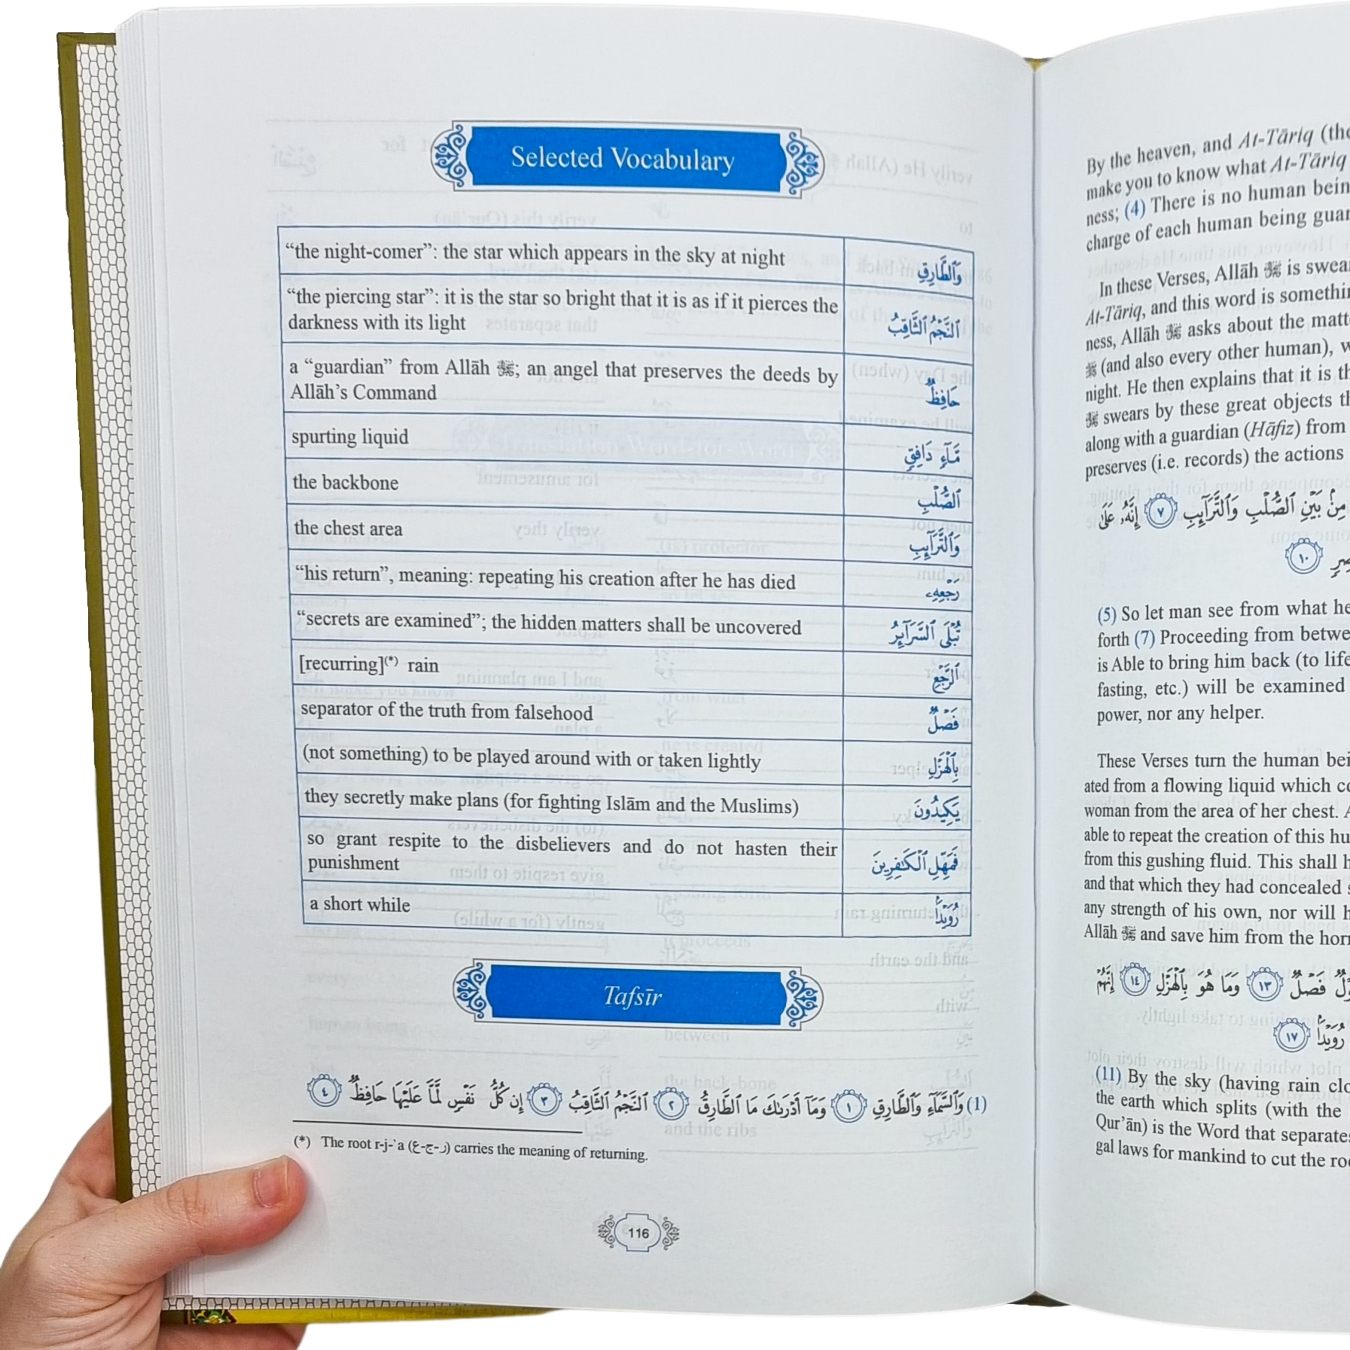 Selected Vocabulary
“the night-comer”: the star which appears in the sky at night وَٱلطَّارِقِ
“the piercing star”: it is the star so bright that it is as if it pierces the
darkness with its light ٱلنَّجْمُ ٱلثَّاقِبُ
a “guardian” from Allāh ﷻ; an angel that preserves the deeds by
Allāh’s Command حَافِظٌ
spurting liquid مَّآءٍ دَافِقٍ
the backbone ٱلصُّلْبِ
the chest area وَٱلتَّرَآئِبِ
“his return”, meaning: repeating his creation after he has died رَجْعِهِۦ
“secrets are examined”; the hidden matters shall be uncovered تُبْلَى ٱلسَّرَآئِرُ
[recurring](*) rain ٱلرَّجْعِ
separator of the truth from falsehood فَصْلٌ
(not something) to be played around with or taken lightly بِٱلْهَزْلِ
they secretly make plans (for fighting Islām and the Muslims) يَكِيدُونَ
so grant respite to the disbelievers and do not hasten their
punishment فَمَهِّلِ ٱلْكَٰفِرِينَ
a short while رُوَيْدًۢا
Tafsīr
(1) وَٱلسَّمَآءِ وَٱلطَّارِقِ ١ وَمَآ أَدْرَىٰكَ مَا ٱلطَّارِقُ ٢ ٱلنَّجْمُ ٱلثَّاقِبُ ٣ إِن كُلُّ نَفْسٍ لَّمَّا عَلَيْهَا حَافِظٌ ٤
(*) The root r-j-ʿa (ر-ج-ع) carries the meaning of returning.
116
By the heaven, and At-Tāriq (the
make you to know what At-Tāriq
ness; (4) There is no human bein
charge of each human being guar
In these Verses, Allāh ﷻ is swea
At-Tāriq, and this word is somethin
ness, Allāh ﷻ asks about the matt
ﷺ (and also every other human), w
night. He then explains that it is th
ﷻ swears by these great objects th
along with a guardian (Hāfiz) from
preserves (i.e. records) the actions
مِنۢ بَيْنِ ٱلصُّلْبِ وَٱلتَّرَآئِبِ ٧ إِنَّهُۥ عَلَىٰ
١٠
(5) So let man see from what he
forth (7) Proceeding from betwe
is Able to bring him back (to life
fasting, etc.) will be examined
power, nor any helper.
These Verses turn the human bei
ated from a flowing liquid which co
woman from the area of her chest. A
able to repeat the creation of this hu
from this gushing fluid. This shall h
and that which they had concealed s
any strength of his own, nor will h
Allāh ﷻ and save him from the horr
فَصْلٌ ١٣ وَمَا هُوَ بِٱلْهَزْلِ ١٤ إِنَّهُمْ
رُوَيْدًۢا ١٧
(11) By the sky (having rain clo
the earth which splits (with the
Qur’ān) is the Word that separates
gal laws for mankind to cut the roo